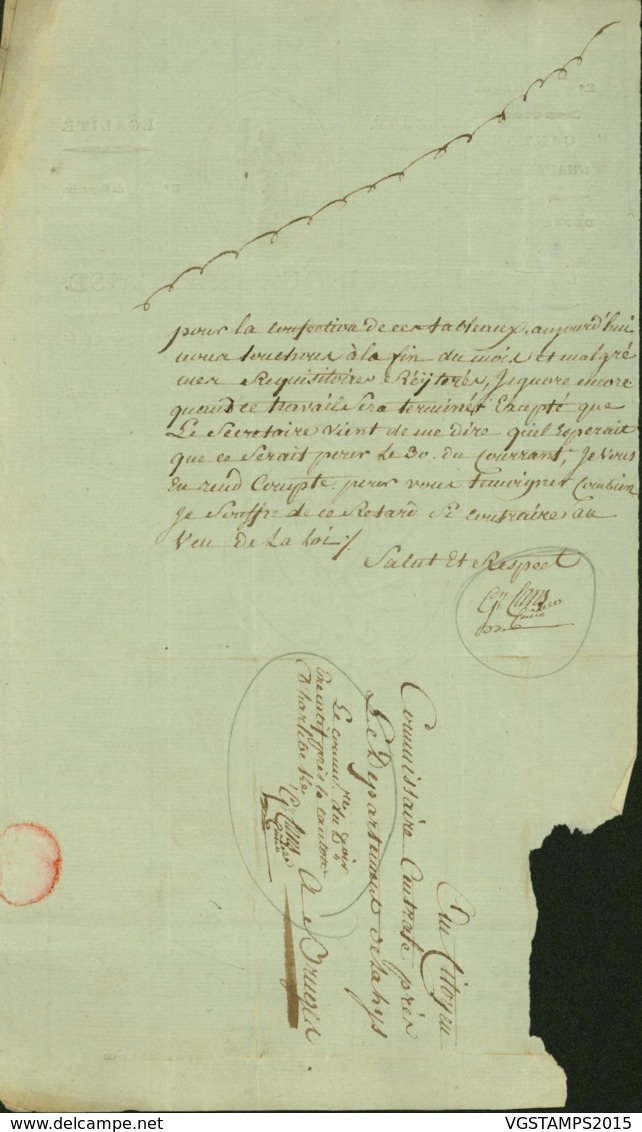 pour la Confection de ces tableaux, aujourd'hui
nous touchons à la fin du mois et malgré
mes Requisitoires Réïterés, J'ignore encore
quand ce travail sera terminér Excepté que
Le Secretaire vient de me dire qu'il Esperait
que ce serait pour Le 30. du Courrant, Je vous
En rend Compte pour vous temoigner Combien
Je souffre de ce Retard si contraire au
Veu de La Loi ./.
Salut Et Respect
Au Citoyen
Commissaire Centrale près
Le Departement de la Lys
A Bruges
Le comm.re du D.oir
Executif près le canton
D'harlebeke
EGALITÉ
VGSTAMPS2015